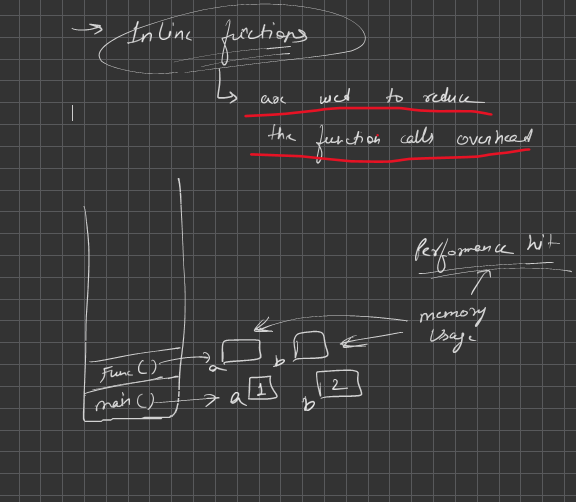 Inline functions
are used to reduce
the function calls overhead
Performance hit
memory
usage
Func()
a
b
main()
a 1
b 2